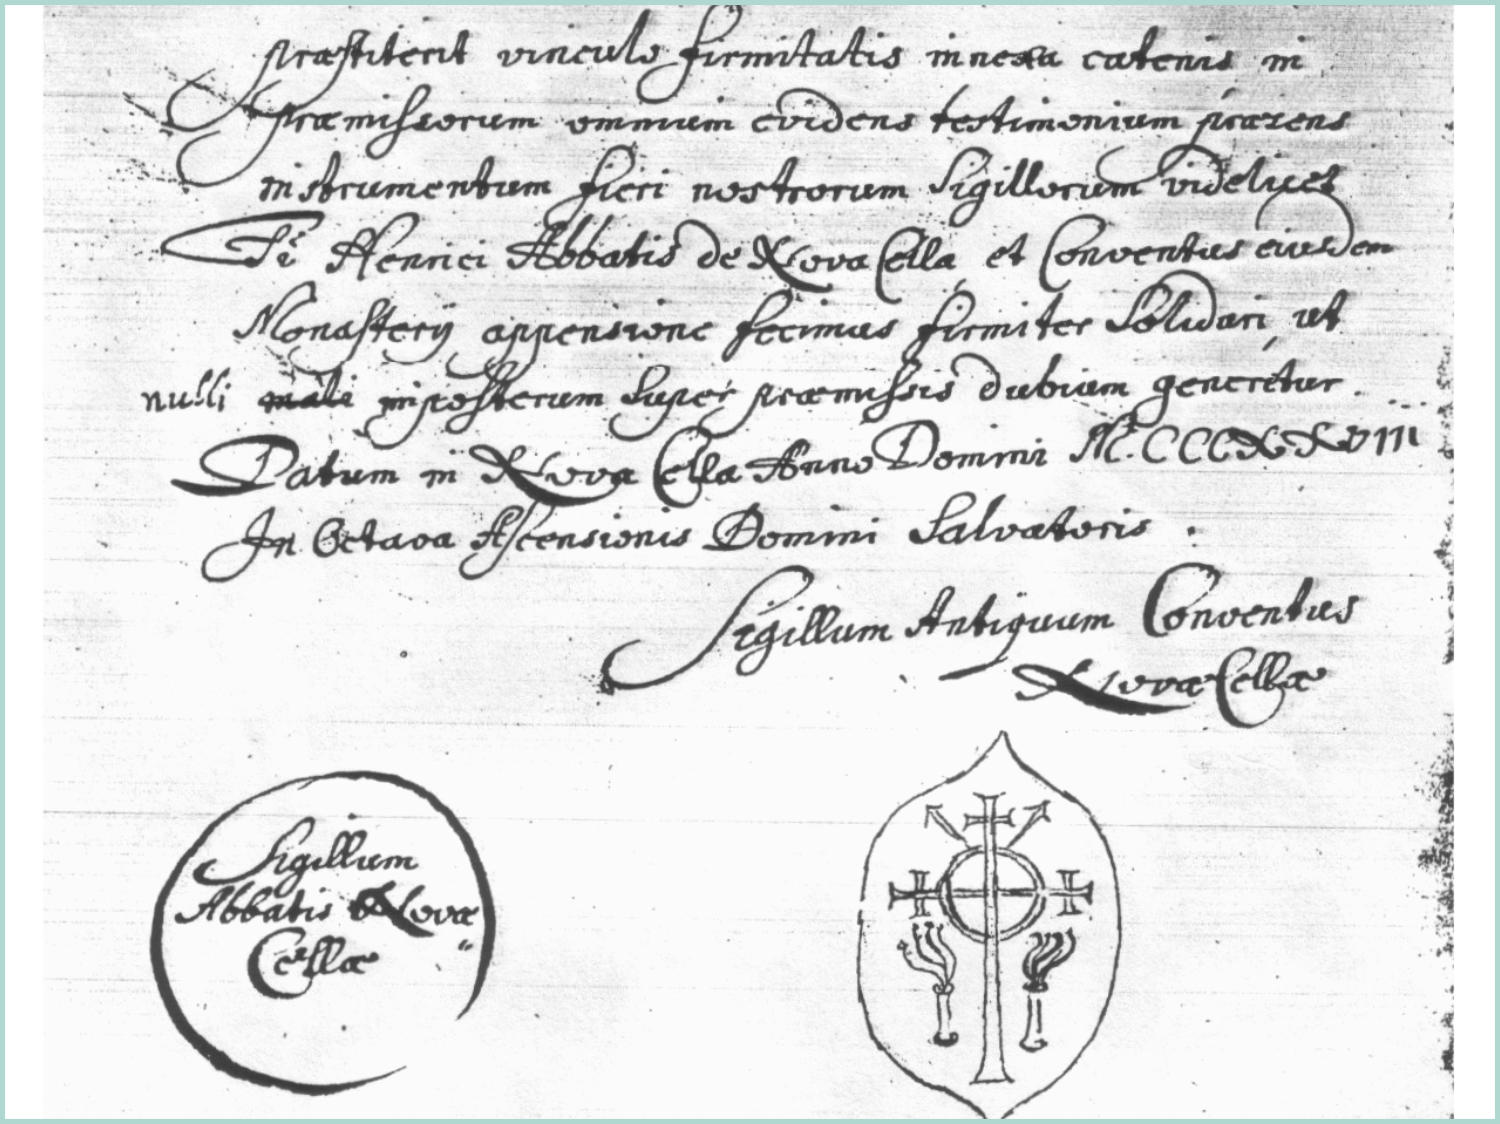 præstiterit vinculo firmitatis innexa catenis in
præmissorum omnium evidens testimonium præsens
instrumentum fieri nostrorum Sigillorum videlicet
Henrici Abbatis de Nova Cella et Conventus eiusdem
Monasterij appensione fecimus firmiter Solidari ut
nulli imposterum Super præmissis dubium generetur.
Datum in Nova Cella Anno Domini M.CCCXXVIII
In Octava Ascensionis Domini Salvatoris.
Sigillum Antiquum Conventus
Novæ Cellæ
Sigillum
Abbatis Novæ
Cellæ